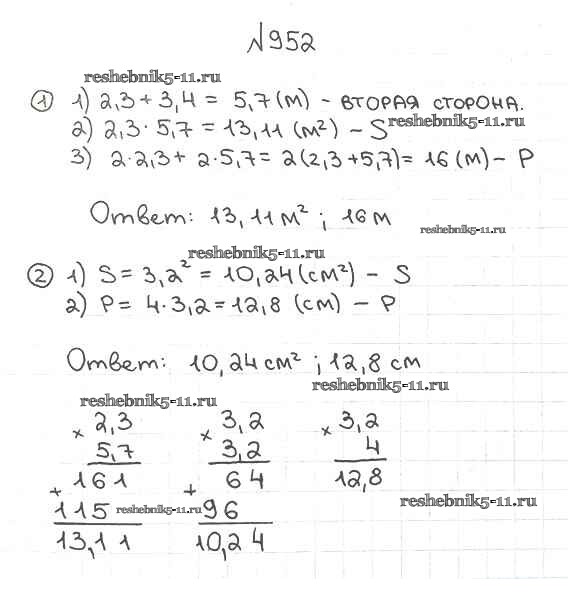 №952
reshebnik5-11.ru
① 1) 2,3 + 3,4 = 5,7 (м) - ВТОРАЯ СТОРОНА.
2) 2,3 · 5,7 = 13,11 (м²) - S reshebnik5-11.ru
3) 2·2,3 + 2·5,7 = 2(2,3+5,7) = 16 (м) - P
Ответ: 13,11 м² ; 16 м
reshebnik5-11.ru
reshebnik5-11.ru
② 1) S = 3,2² = 10,24 (см²) - S
2) P = 4·3,2 = 12,8 (см) - P
Ответ: 10,24 см² ; 12,8 см
reshebnik5-11.ru
reshebnik5-11.ru
× 2,3 × 3,2 × 3,2
5,7 3,2 4
161 64 12,8
+ 115 reshebnik5-11.ru + 96 reshebnik5-11.ru
13,11 10,24